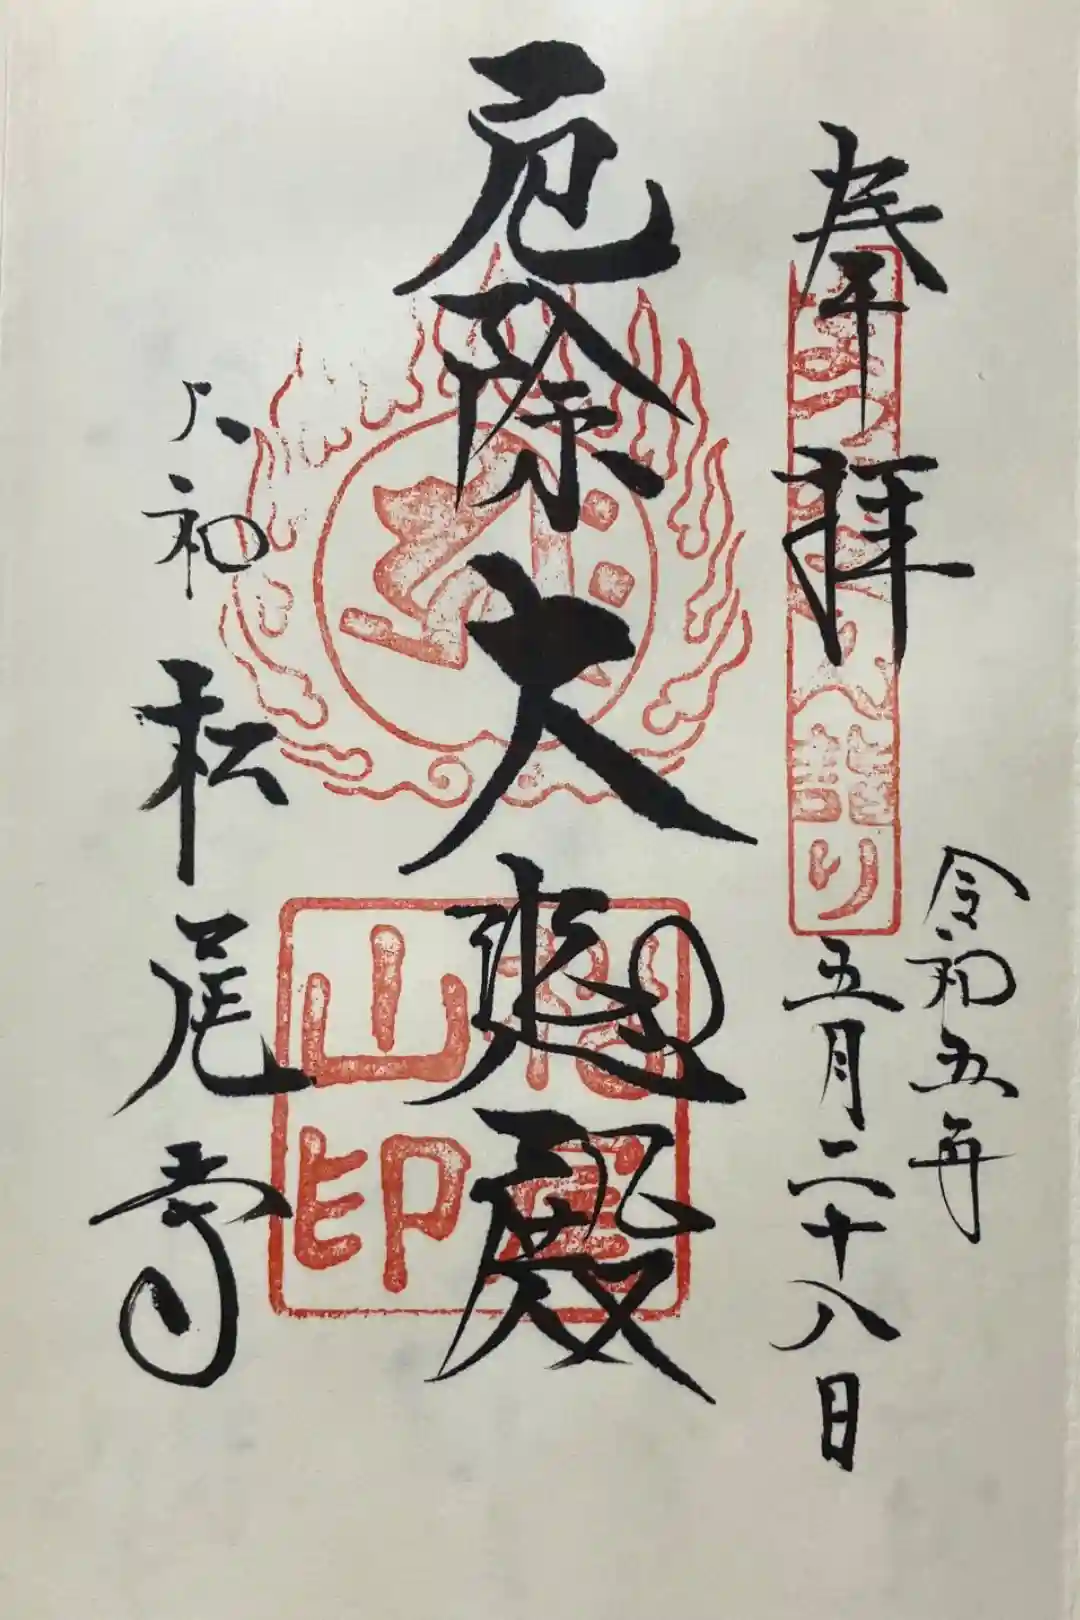 奉拝
令和五年
五月二十八日
厄除
大悲殿
大和
松尾寺
松尾
山印